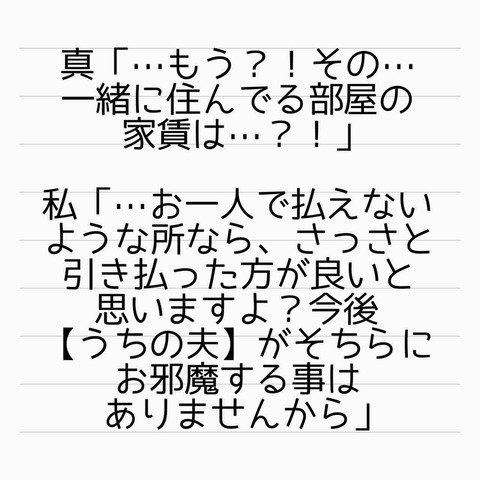 真「…もう？！その…
一緒に住んでる部屋の
家賃は…？！」
私「…お一人で払えない
ような所なら、さっさと
引き払った方が良いと
思いますよ？今後
【うちの夫】がそちらに
お邪魔する事は
ありませんから」